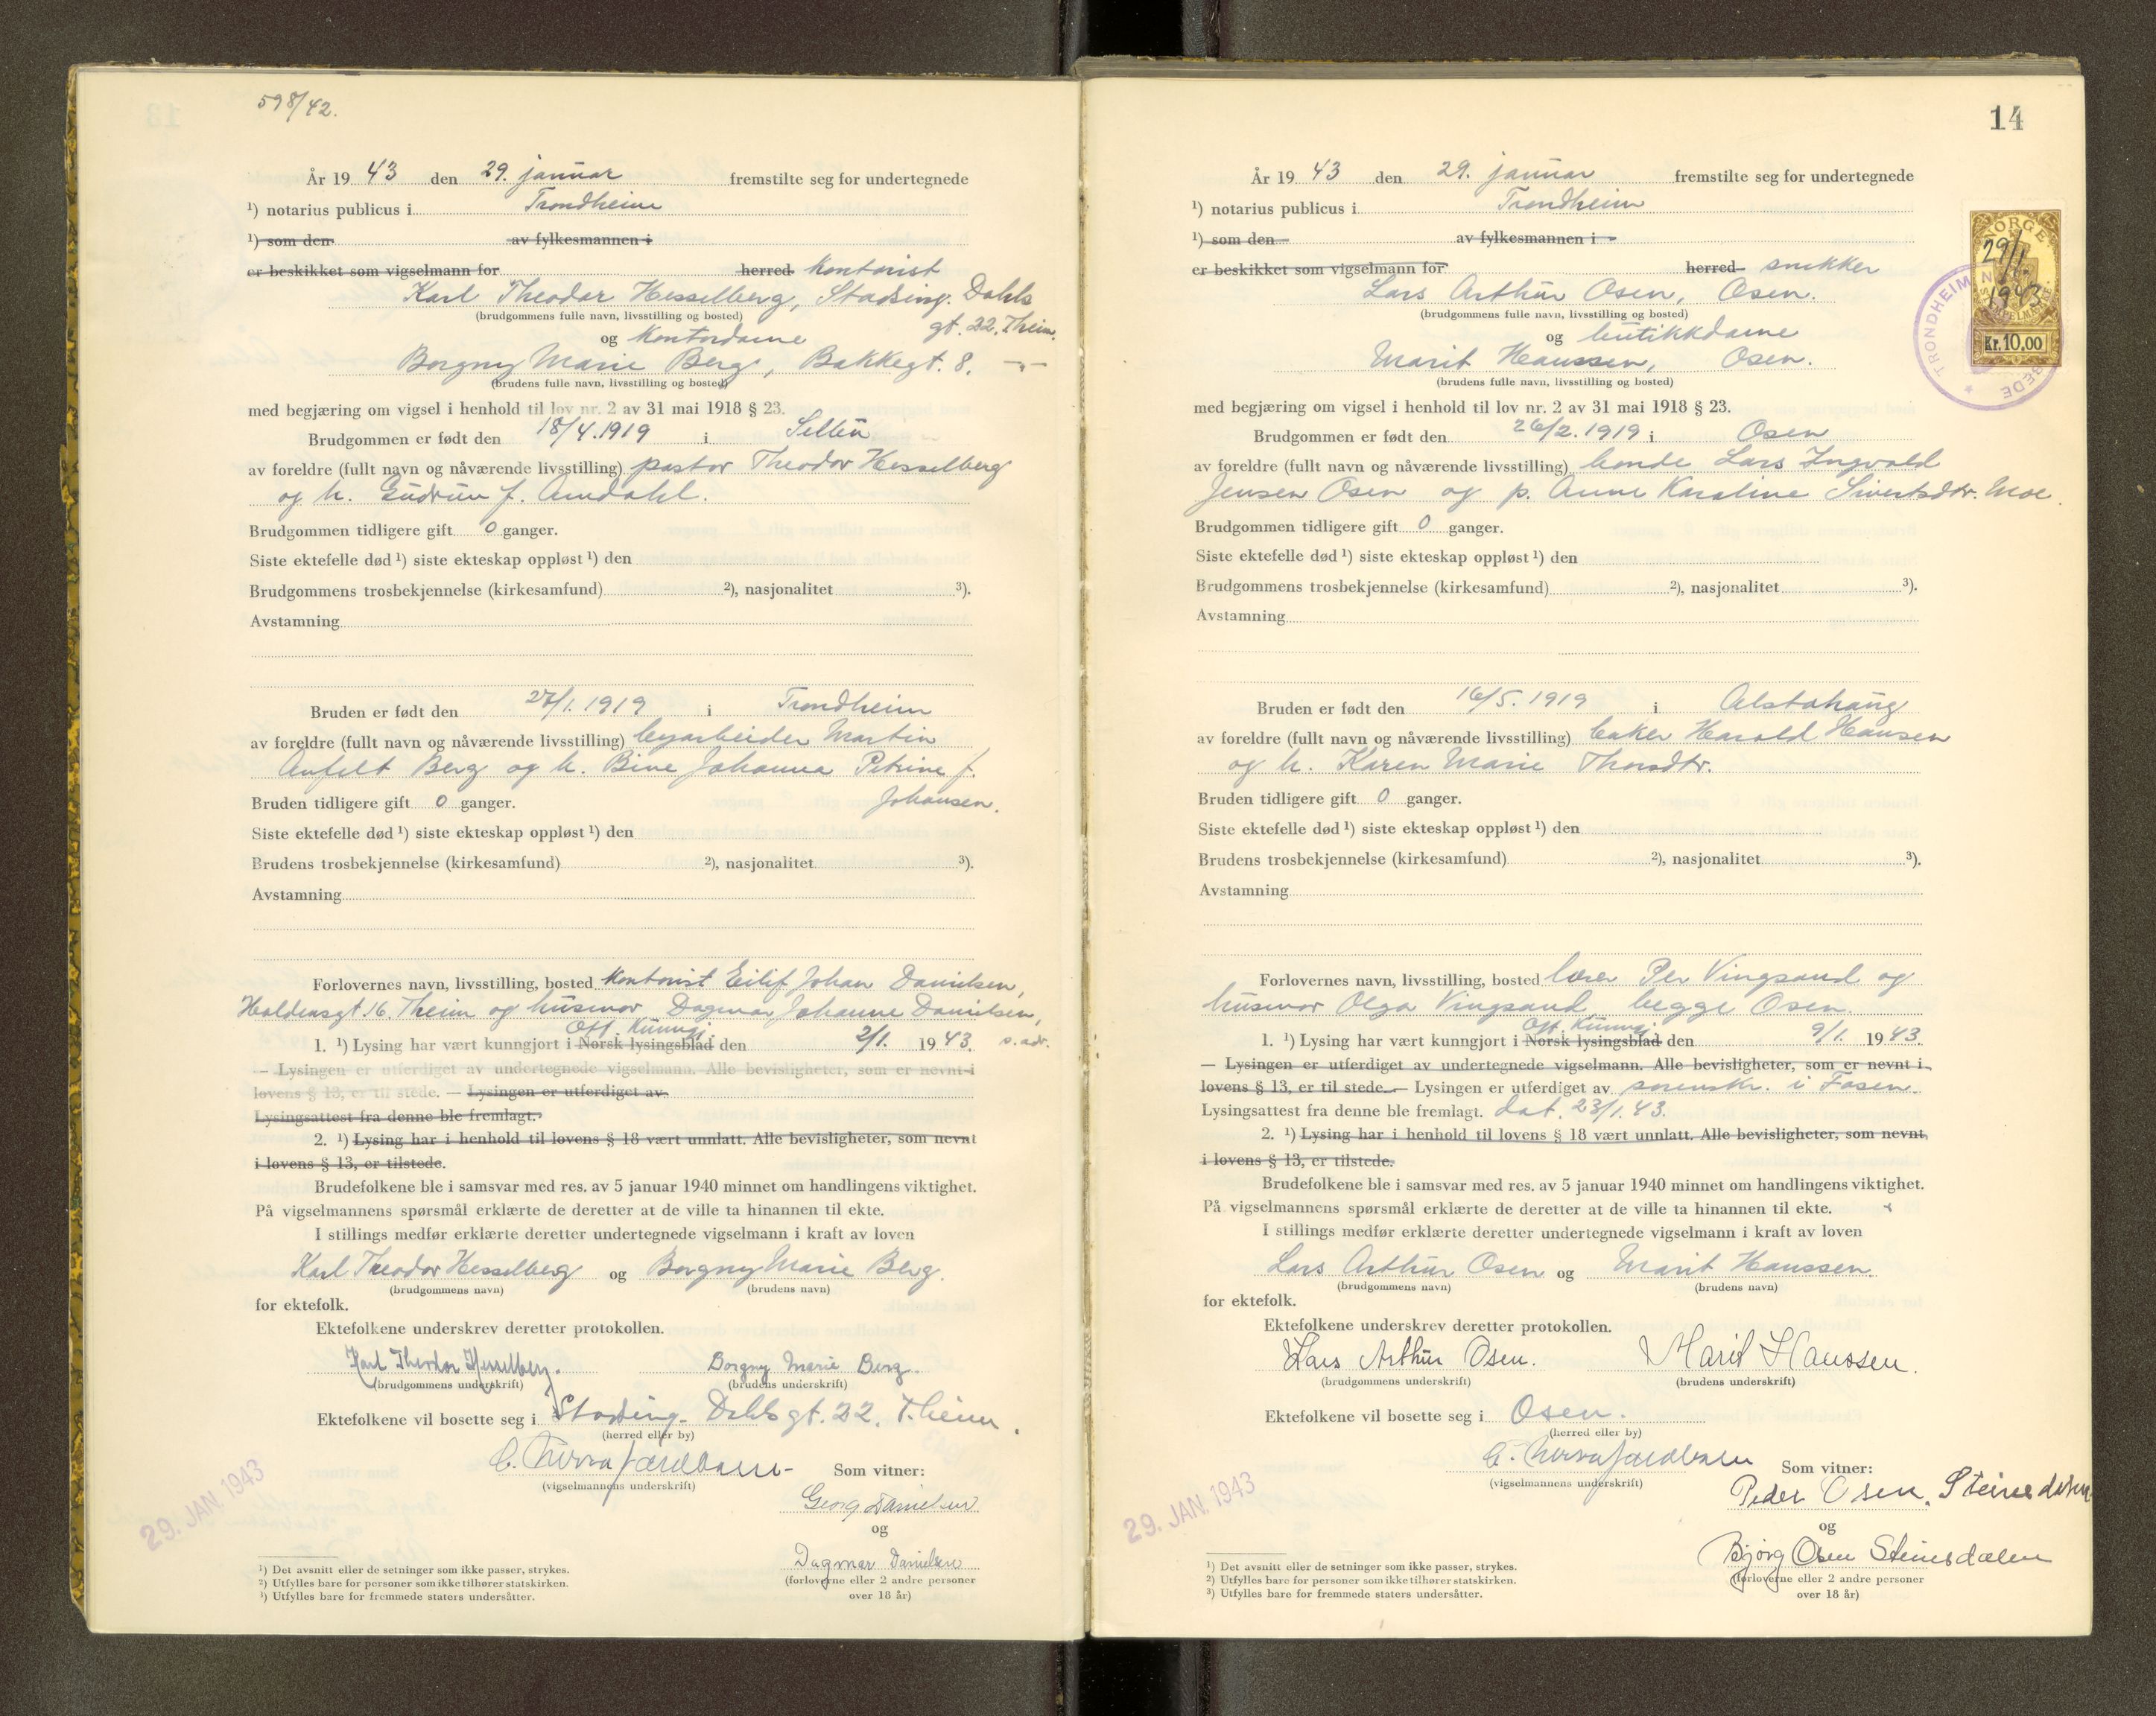 598/42.
År 19 43 den 29. januar fremstilte seg for undertegnede
¹) notarius publicus i Trondheim
¹) som den av fylkesmannen i
er beskikket som vigselmann for herred kontorist
Karl Theodor Hesselberg, Stadsing. Dahls
(brudgommens fulle navn, livsstilling og bosted)
gt. 22. Theim.
og kontordame
Borgny Marie Berg, Bakkegt. 8. —"—
(brudens fulle navn, livsstilling og bosted)
med begjæring om vigsel i henhold til lov nr. 2 av 31 mai 1918 § 23.
Brudgommen er født den 18/4.1919 i Selbu
av foreldre (fullt navn og nåværende livsstilling) pastor Theodor Hesselberg
og h. Gudrun f. Amdahl.
Brudgommen tidligere gift 0 ganger.
Siste ektefelle død ¹) siste ekteskap oppløst ¹) den
Brudgommens trosbekjennelse (kirkesamfund) ²), nasjonalitet ³).
Avstamning
Bruden er født den 27/1.1919 i Trondheim
av foreldre (fullt navn og nåværende livsstilling) byarbeider Martin
Anfelt Berg og h. Bine Johanna Petrine f.
Johansen.
Bruden tidligere gift 0 ganger.
Siste ektefelle død ¹) siste ekteskap oppløst ¹) den
Brudens trosbekjennelse (kirkesamfund) ²), nasjonalitet ³).
Avstamning
Forlovernes navn, livsstilling, bosted kontorist Eilif Johan Danielsen,
Haldensgt 16. Theim og husmor Dagmar Johanne Danielsen,
Off. Kunngj. s. adr.
1. ¹) Lysing har vært kunngjort i Norsk lysingsblad den 2/1. 1943.
— Lysingen er utferdiget av undertegnede vigselmann. Alle bevisligheter, som er nevnt i
lovens § 13, er til stede. — Lysingen er utferdiget av
Lysingsattest fra denne ble fremlagt.
2. ¹) Lysing har i henhold til lovens § 18 vært unnlatt. Alle bevisligheter, som nevnt
i lovens § 13, er tilstede.
Brudefolkene ble i samsvar med res. av 5 januar 1940 minnet om handlingens viktighet.
På vigselmannens spørsmål erklærte de deretter at de ville ta hinannen til ekte.
I stillings medfør erklærte deretter undertegnede vigselmann i kraft av loven
Karl Theodor Hesselberg og Borgny Marie Berg.
(brudgommens navn) (brudens navn)
for ektefolk.
Ektefolkene underskrev deretter protokollen.
Karl Theodor Hesselberg. Borgny Marie Berg.
(brudgommens underskrift) (brudens underskrift)
Ektefolkene vil bosette seg i Stadsing. Dahls gt. 22. Theim.
(herred eller by)
(vigselmannens underskrift) Som vitner:
Georg Danielsen
og
Dagmar Danielsen
(forloverne eller 2 andre personer
over 18 år)
29. JAN. 1943
¹) Det avsnitt eller de setninger som ikke passer, strykes.
²) Utfylles bare for personer som ikke tilhører statskirken.
³) Utfylles bare for fremmede staters undersåtter.
14
År 19 43 den 29. januar fremstilte seg for undertegnede
¹) notarius publicus i Trondheim
¹) som den av fylkesmannen i
er beskikket som vigselmann for herred snikker
Lars Arthur Osen, Osen.
(brudgommens fulle navn, livsstilling og bosted)
og butikkdame
Marit Hanssen, Osen.
(brudens fulle navn, livsstilling og bosted)
NORGE
29/1
1943
STEMPELMERKE
Kr. 10,00
TRONDHEIM
med begjæring om vigsel i henhold til lov nr. 2 av 31 mai 1918 § 23.
Brudgommen er født den 26/2.1919 i Osen
av foreldre (fullt navn og nåværende livsstilling) bonde Lars Ingvald
Jensen Osen og p. Anne Karoline Sivertsdtr. Moe.
Brudgommen tidligere gift 0 ganger.
Siste ektefelle død ¹) siste ekteskap oppløst ¹) den
Brudgommens trosbekjennelse (kirkesamfund) ²), nasjonalitet ³).
Avstamning
Bruden er født den 16/5.1919 i Alstahaug
av foreldre (fullt navn og nåværende livsstilling) baker Harald Hansen
og h. Karen Marie Thorsdtr.
Bruden tidligere gift 0 ganger.
Siste ektefelle død ¹) siste ekteskap oppløst ¹) den
Brudens trosbekjennelse (kirkesamfund) ²), nasjonalitet ³).
Avstamning
Forlovernes navn, livsstilling, bosted lærer Per Vingsand og
husmor Olga Vingsand, begge Osen.
Off. Kunngj.
1. ¹) Lysing har vært kunngjort i Norsk lysingsblad den 9/1. 1943.
— Lysingen er utferdiget av undertegnede vigselmann. Alle bevisligheter, som er nevnt i
lovens § 13, er til stede. — Lysingen er utferdiget av sorenskr. i Fosen.
Lysingsattest fra denne ble fremlagt. dat. 23/1.43.
2. ¹) Lysing har i henhold til lovens § 18 vært unnlatt. Alle bevisligheter, som nevnt
i lovens § 13, er tilstede.
Brudefolkene ble i samsvar med res. av 5 januar 1940 minnet om handlingens viktighet.
På vigselmannens spørsmål erklærte de deretter at de ville ta hinannen til ekte.
I stillings medfør erklærte deretter undertegnede vigselmann i kraft av loven
Lars Arthur Osen og Marit Hanssen.
(brudgommens navn) (brudens navn)
for ektefolk.
Ektefolkene underskrev deretter protokollen.
Lars Arthur Osen. Marit Hanssen.
(brudgommens underskrift) (brudens underskrift)
Ektefolkene vil bosette seg i Osen.
(herred eller by)
(vigselmannens underskrift) Som vitner:
Peder Osen, Steinsdalen
og
Bjørg Osen Steinsdalen
(forloverne eller 2 andre personer
over 18 år)
29. JAN. 1943
¹) Det avsnitt eller de setninger som ikke passer, strykes.
²) Utfylles bare for personer som ikke tilhører statskirken.
³) Utfylles bare for fremmede staters undersåtter.